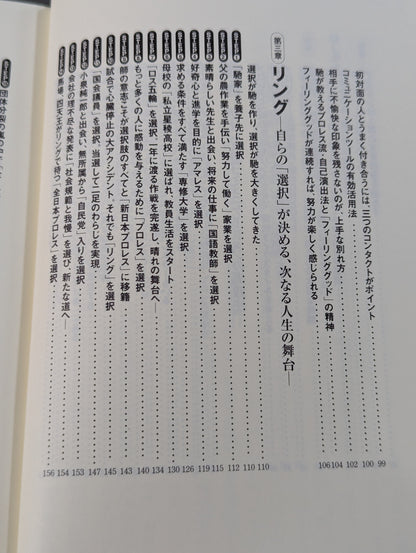 初対面の人とうまく付き合うには、三つのコンタクトがポイント 99
コミュニケーションツールの有効活用法 100
相手に不愉快な印象を残さないのが、上手な別れ方 102
馳が教えるプロレス流、自己演出法と「フィーリンググッド」の精神 104
フィーリンググッドが連続すれば、努力が楽しく感じられる 106
第三章 リング――自らの「選択」が決める、次なる人生の舞台――
選択が馳を作り、選択が馳を大きくしてきた 110
「馳家」を養子先に選択 110
父の農作業を手伝い「努力して働く」家業を選択 112
素晴らしい先生と出会い、将来の仕事に「国語教師」を選択 115
好奇心と進学を目的に「アマレス」を選択 119
求める条件をすべて満たす「専修大学」を選択 126
母校の「私立星稜高校」に選ばれ、教員生活をスタート 130
「ロス五輪」を選択、一年に渡る作戦を完遂し、晴れの舞台へ 134
もっと多くの人に感動を与えるために「プロレス」を選択 140
師の意志こそが選択肢のすべてと「新日本プロレス」に移籍 143
試合で心臓停止の大アクシデント それでも「リング」を選択 145
「国会議員」を選択、当選して二足のわらじを実現 147
小泉純一郎と出会い、無所属から「自民党」入りを選択 153
会社の理不尽な発表に「社会規範と我慢」を選び、新たな道へ 154
馬場、四天王がリングで待つ「全日本プロレス」を選択 156
団体分裂の嵐の